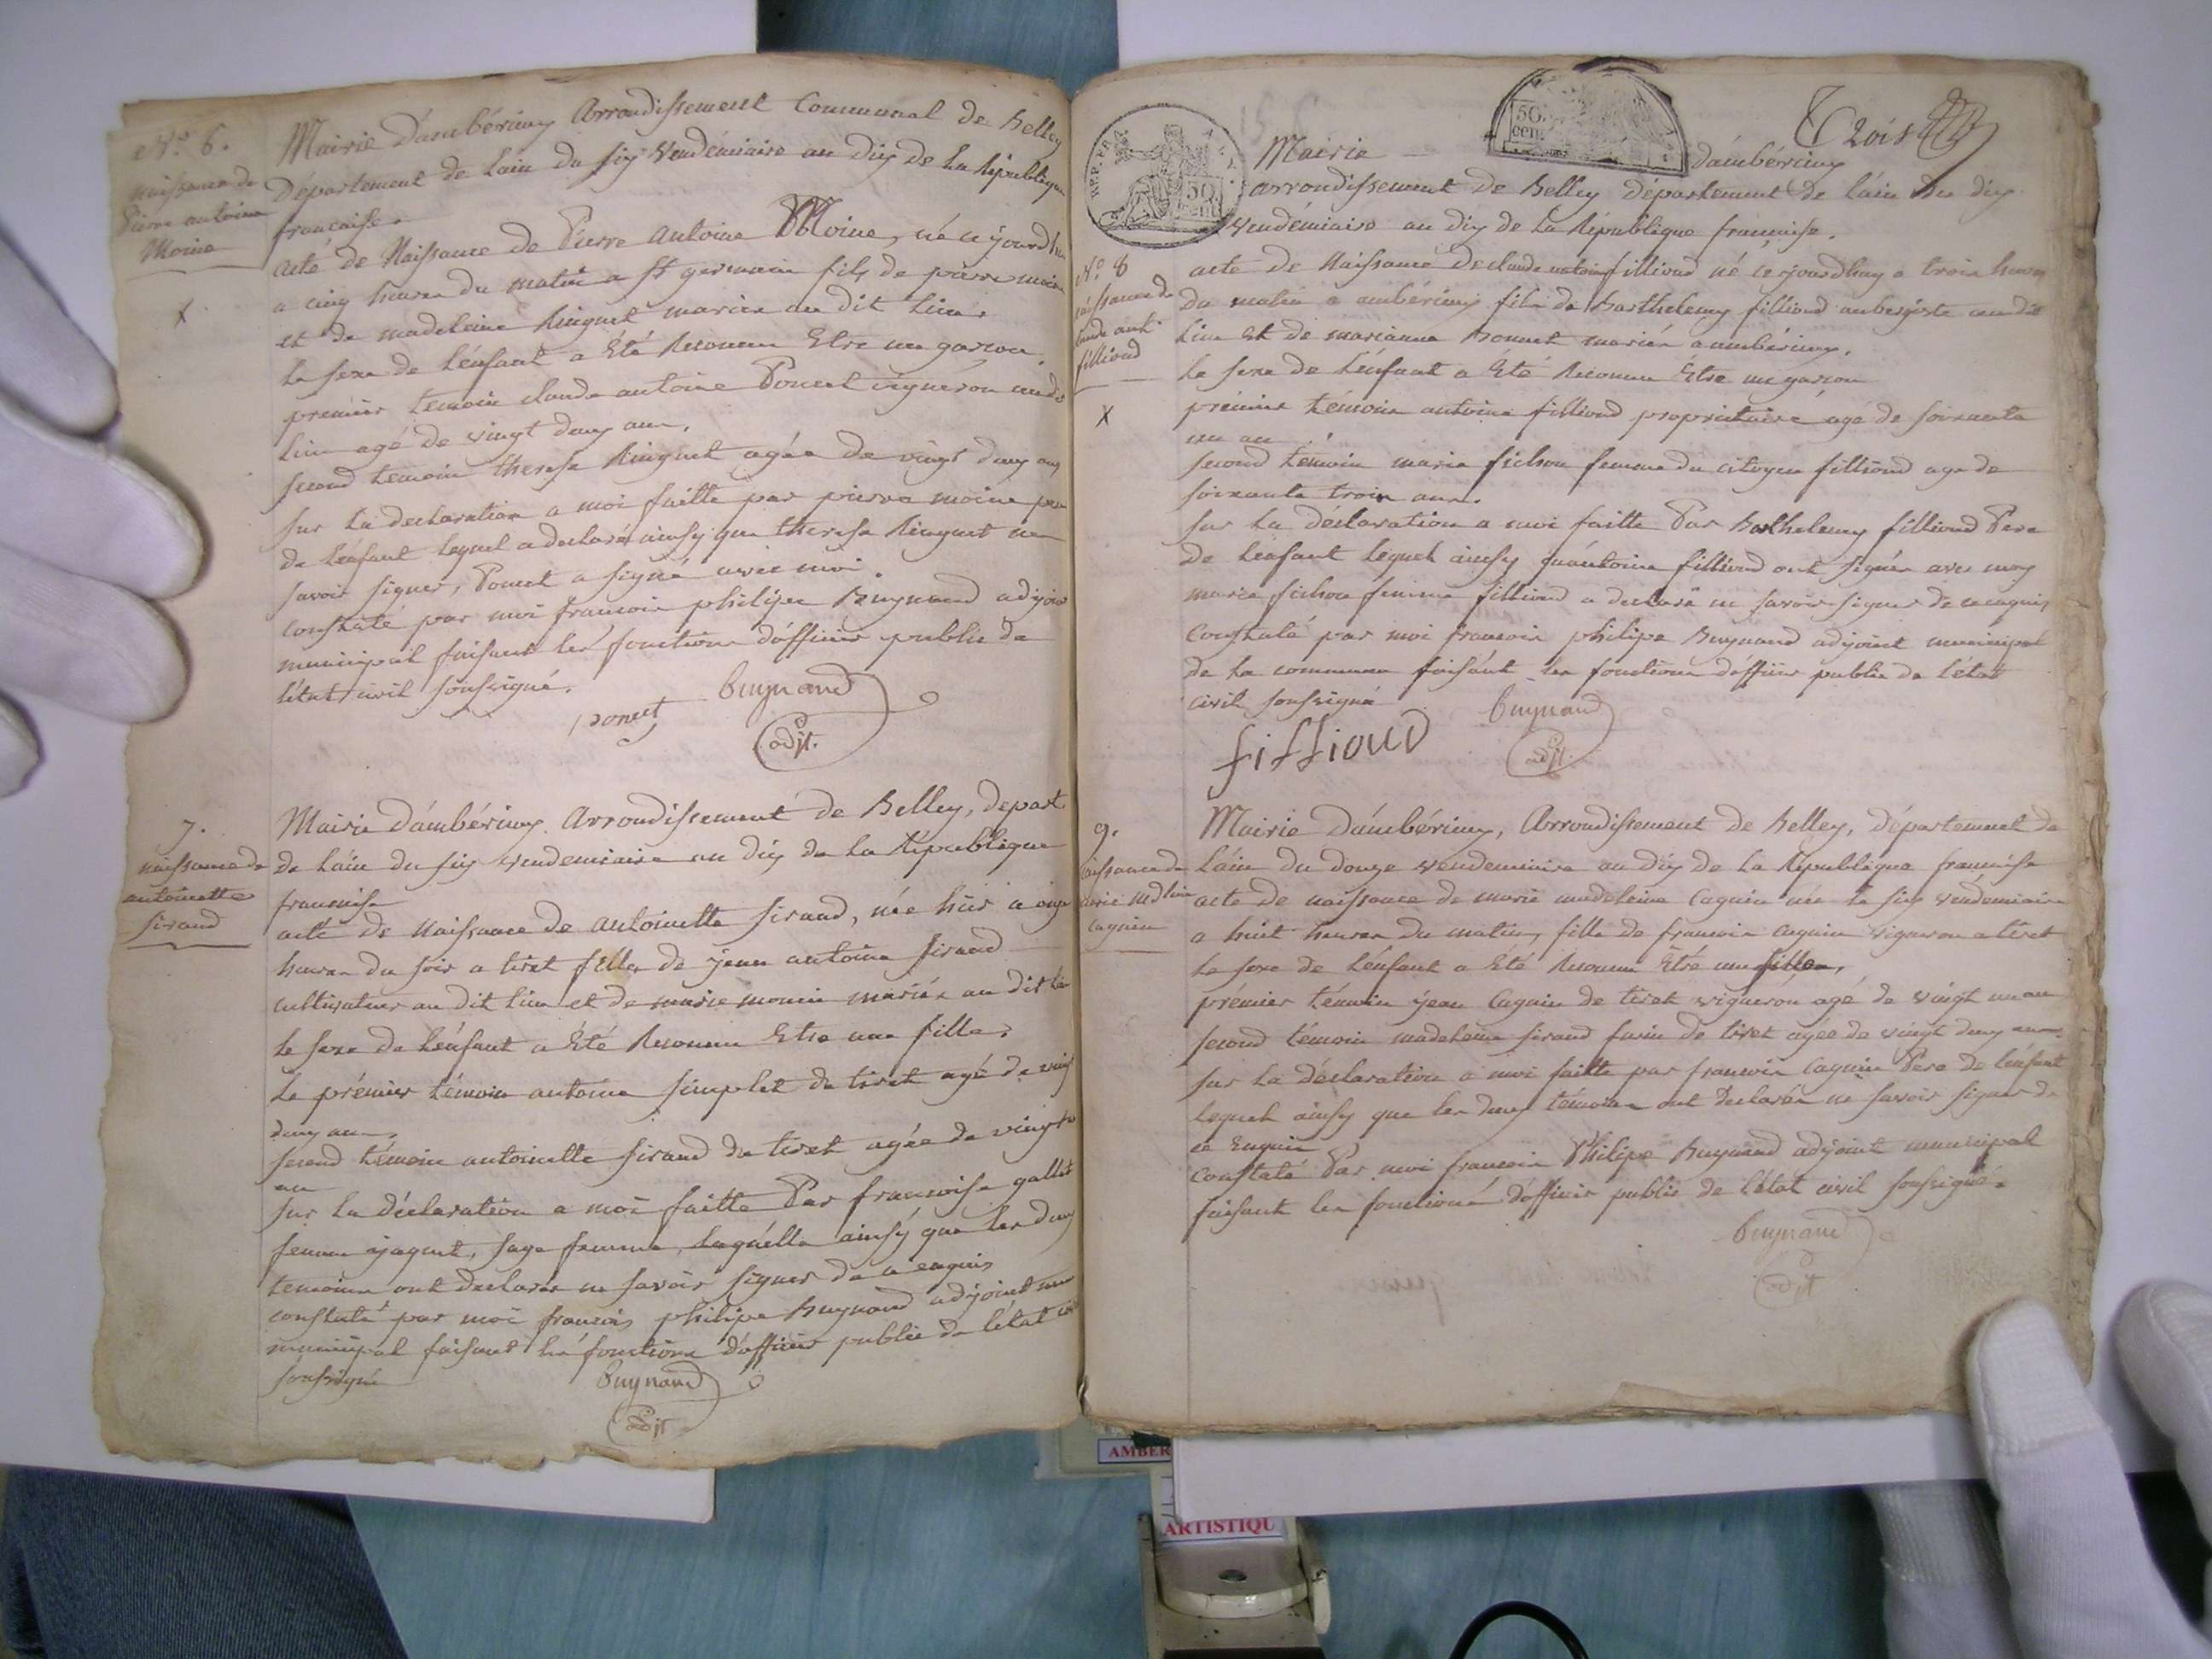 N.o 6.
naissance de
Pierre antoine
Moine
X
Mairie D'ambérieux Arrondissement Communal de Belley
Département de Lain du six Vendémiaire an Dix de La République
francaise.
acte de Naissance de Pierre Antoine Moine, né ce jourd'hui
a cinq heures du matin a St germain fils de pierre moine
et de madeleine Ringuet mariés au dit Lieu.
Le sexe de Lénfant a Eté Reconnu Etre un garcon.
premier temoin claude antoine Poncet vigneron au dit
Lieu agé de vingt deux ans.
second temoin therese Ringuet agée de vingt deux ans
sur La declaration a moi faitte par pierre moine pere
de Lénfant lequel a declaré ainsy que therese Ringuet ne
savoir signer, Poncet a signé avec moi.
constaté par moi francois philipe Buynand adjoint
municipal faisant les fonctions dófficier public de
létat civil soussigné.
poncet
Buynand
adjt.
7.
naissance de
antoinette
sirand
Mairie d'ambérieux Arrondissement de Belley, depart.
de Láin du six vendemiaire an dix de La République
francaise
acte de Naissance de antoinette sirand, née hiér a onze
heures du soir a tiret fille de jean antoine sirand
cultivateur au dit Lieu et de marie monin mariés au dit Lieu
Le sexe de Lénfant a Eté Reconnu Etre une fille.
Le prémier témoin antoine simplet de tiret agé de vingt
deux ans.
second témoin antoinette sirand de tiret agée de vingt
un
sur La déclaration a moi faitte Par francoise
femme jaquet, sage femme, Laquélle ainsy que les deux
temoins ont declarés ne savoir signer de ce enquis
constaté par moi francois philipe Buynand adjoint
municipal faisant les fonctions dófficier public de létat
soussigné
Buynand
adjt
Trois
REP. FRA.
50 cent
50. cen.
Mairie dámbérieux
arrondissement de Belley Département de Láin du dix
Vendémiaire an dix de La République francaise.
N.o 8
naissance de
claude ant.
fillioud
X
acte de Naissance de claude antoine fillioud né ce jourdhuy a trois heures
du matin a ambérieux fils de Barthelemy fillioud aubergiste au dit
Lieu et de marianne Bonnet mariés a ambérieux.
Le sexe de Lénfant a Eté Reconnu Etre un garcon
prémier témoin antoine fillioud propriétaire agé de soixante
un an.
second témoin marie fichou femme du citoyen fillioud age de
soixante trois ans.
sur La déclaration a moi faitte Par Barthelemy fillioud Pere
de Lénfant Lequel áinsy quántoine fillioud ont signés avec moy
marie fichou femme fillioud a declaré ne savoir signer de ce enquis
constaté par moi francois philipe Buynand adjoint municipal
de La commune faisánt les fonctions dófficier public de Létat
civil soussigné
filliouD
Buynand
adjt.
9.
naissance de
marie mdleine
Caguin
Mairie Dámbérieux, Arrondissement de Belley, département de
Láin du douze vendemiaire an dix de La République francaise
acte de naissance de marie madeleine Caguin née Le six vendémiaire
a huit heures du matin, fille de francois Caguin vigneron a tiret
Le sexe de Lénfant a Eté Reconnu Etre une fille.
prémier témoin jean Caguin de tiret vigneron agé de vingt un an
second témoin madeleine sirand de tiret agée de vingt deux ans.
sur La déclaration a moi faitte par francois Caguin Pere de Lénfant
Lequel ainsy que les deux témoins ont declarés ne savoir signer de
ce Enquis
constaté Par moi francois Philipe Buynand adjoint municipal
faisant les fonctions dófficier public de Létat civil soussigné.
Buynand
adjt
AMBER
ARTISTIQU